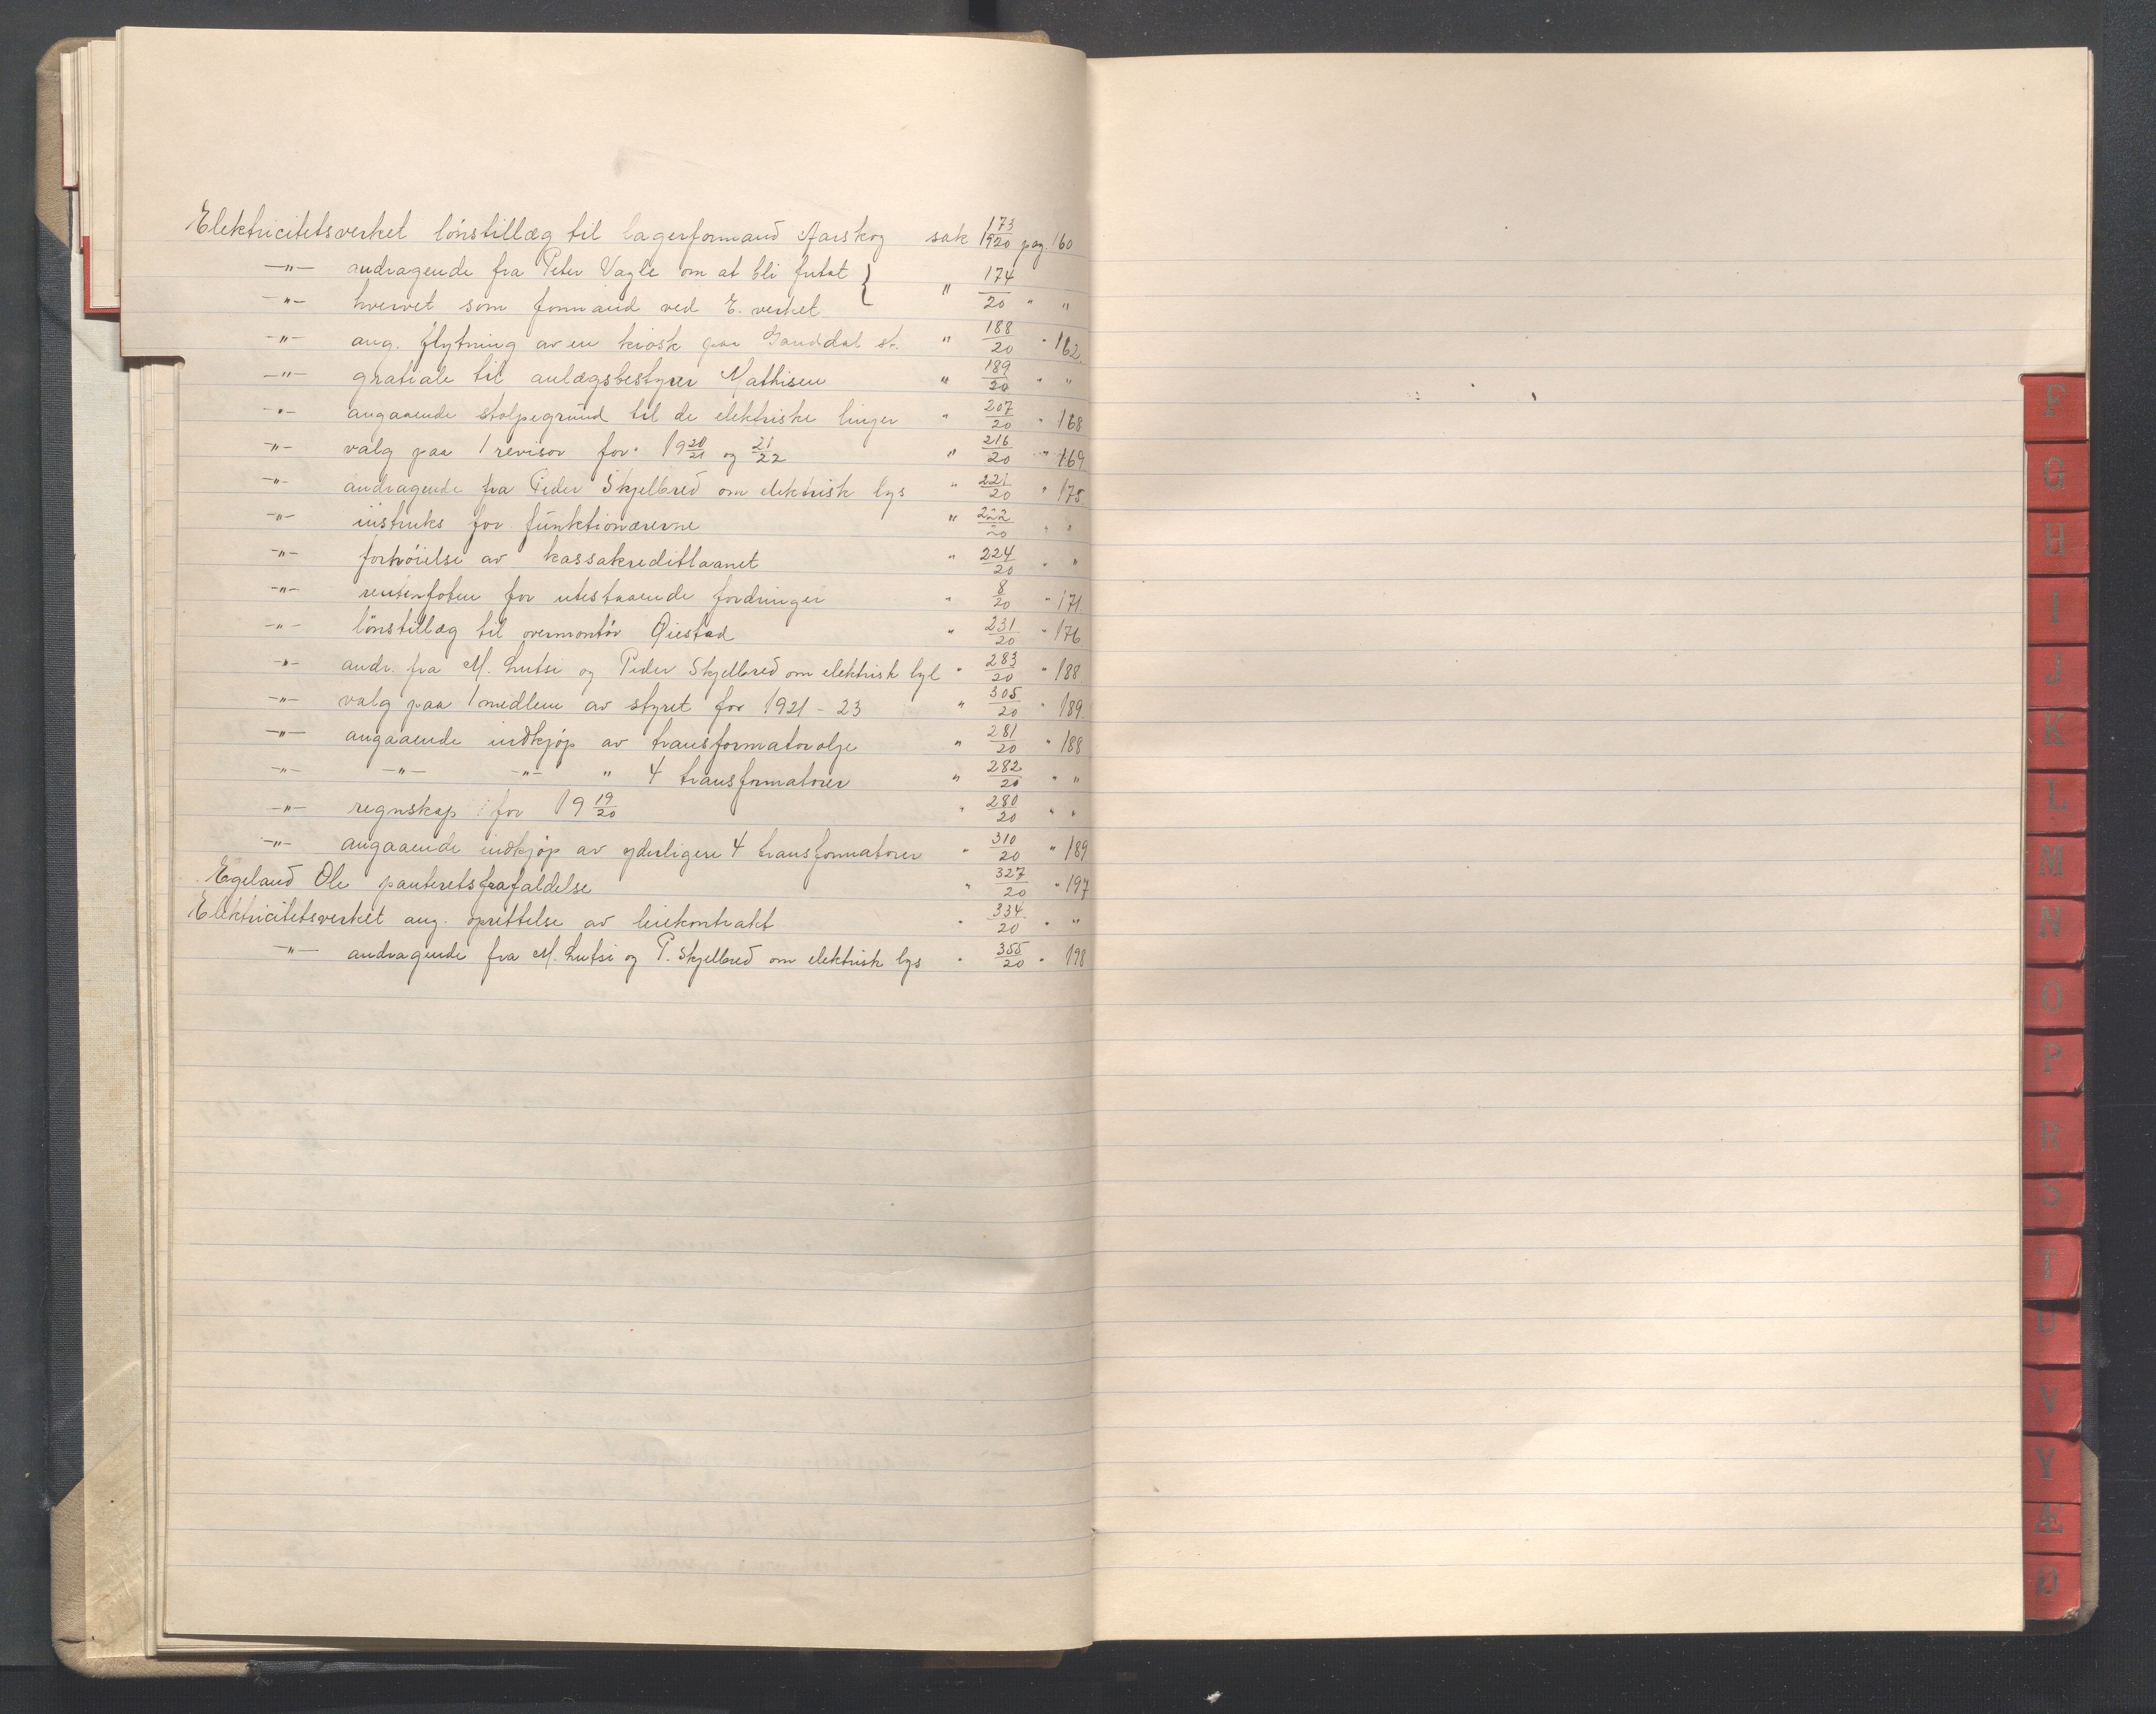 Elektricitetsverket lönstillæg til lagerformand Aarskog sak 173/1920 pag. 160
—"— andragende fra Peter Vagle om at bli fritat } " 174/20 " "
—"— hvervet som formand ved E. verket
—"— ang. flytning av en kiosk paa Ganddal st. " 188/20 " 162.
—"— gratiale til anlægsbestyrer Mathisen " 189/20 " "
—"— angaaende stolpegrund til de elektriske linjer " 207/20 " 168
—"— valg paa 1 revisor for 19 20/21 og 21/22 " 216/20 " 169.
—"— andragende fra Peder Skjelbred om elektrisk lys " 221/20 " 175.
—"— instruks for funktionærerne " 222/20 " "
—"— forhöielse av kassakreditlaanet " 224/20 " "
—"— rentefoten for utestaaende fordringer " 8/20 " 171.
—"— lönstillæg til overmontör Øiestad " 231/20 " 176
—"— andr. fra M. Lutsi og Peder Skjelbred om elektrisk lys " 283/20 " 188
—"— valg paa 1 medlem av styret for 1921 - 23 " 305/20 " 189.
—"— angaaende indkjøp av transformatorolje " 281/20 " 188
—"— —"— —"— " 4 transformatorer " 282/20 " "
—"— regnskap for 19 19/20 " 280/20 " "
—"— angaaende indkjøp av yderligere 4 transformatorer " 310/20 " 189
Egeland Ole panteretsfrafaldelse " 327/20 " 197
Elektricitetsverket ang. oprettelse av leiekontrakt " 334/20 " "
—"— andragende fra M. Lutsi og P. Skjelbred om elektrisk lys " 355/20 " 198
F
G
H
I
J
K
L
M
N
O
P
R
S
T
U
V
Y
Æ
Ø